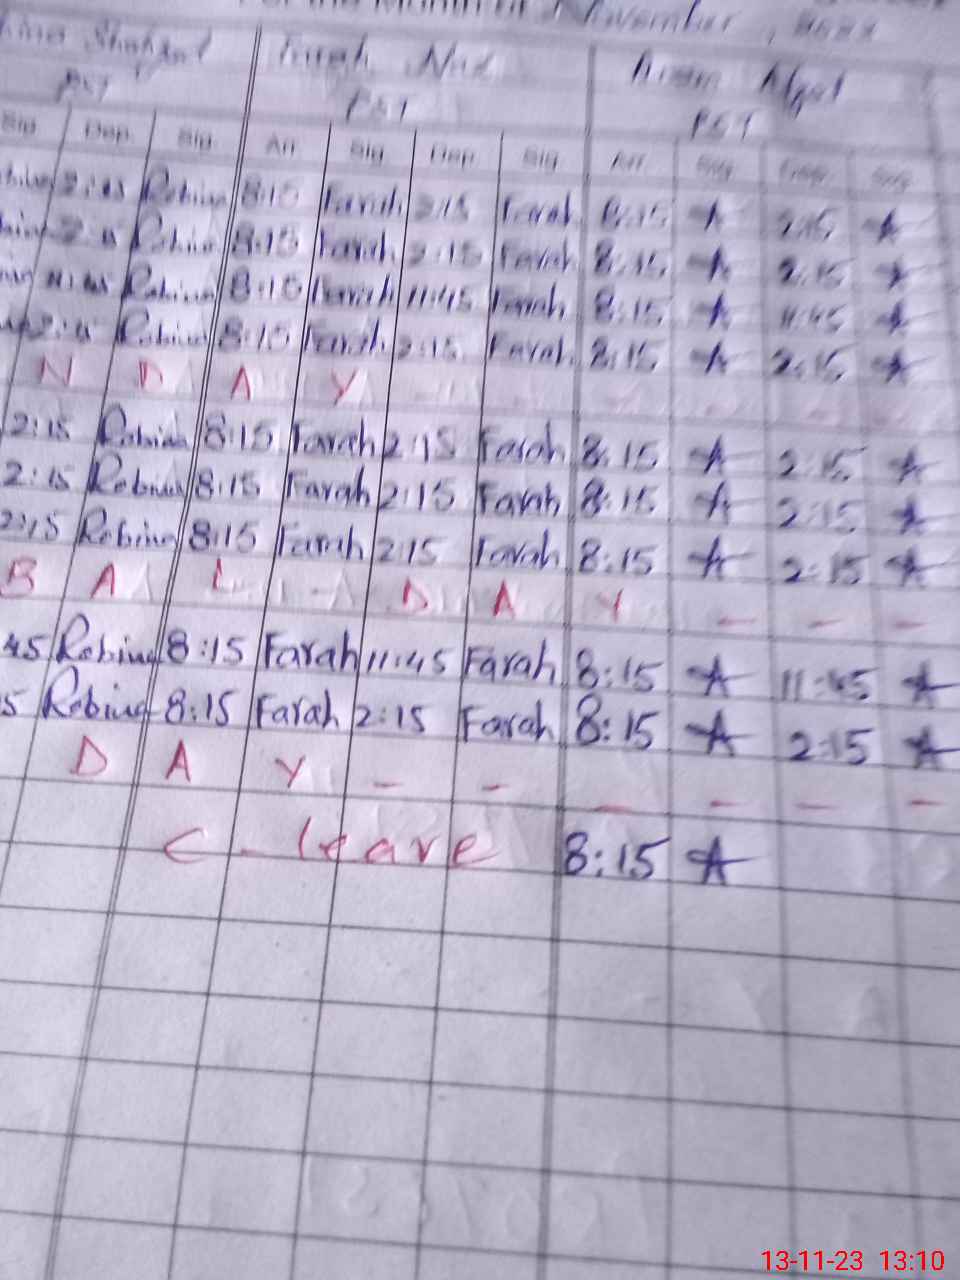 For the Month of November,
Farah Naz
PST PST PST
Sig Dep Sig Arr Sig Dep Sig Arr Sig Dep Sig
Robina 8:15 Farah 2:15 Farah 8:15 A 2:15 A
Robina 8:15 Farah 2:15 Farah 8:15 A 2:15 A
Robina 8:15 Farah 11:45 Farah 8:15 A 11:45 A
Robina 8:15 Farah 2:15 Farah 8:15 A 2:15 A
N D A Y
2:15 Robina 8:15 Farah 2:15 Farah 8:15 A 2:15 A
2:15 Robina 8:15 Farah 2:15 Farah 8:15 A 2:15 A
2:15 Robina 8:15 Farah 2:15 Farah 8:15 A 2:15 A
B A L D A Y - - -
45 Robina 8:15 Farah 11:45 Farah 8:15 A 11:45 A
5 Robina 8:15 Farah 2:15 Farah 8:15 A 2:15 A
D A Y - - - - - -
C - leave 8:15 A
13-11-23 13:10